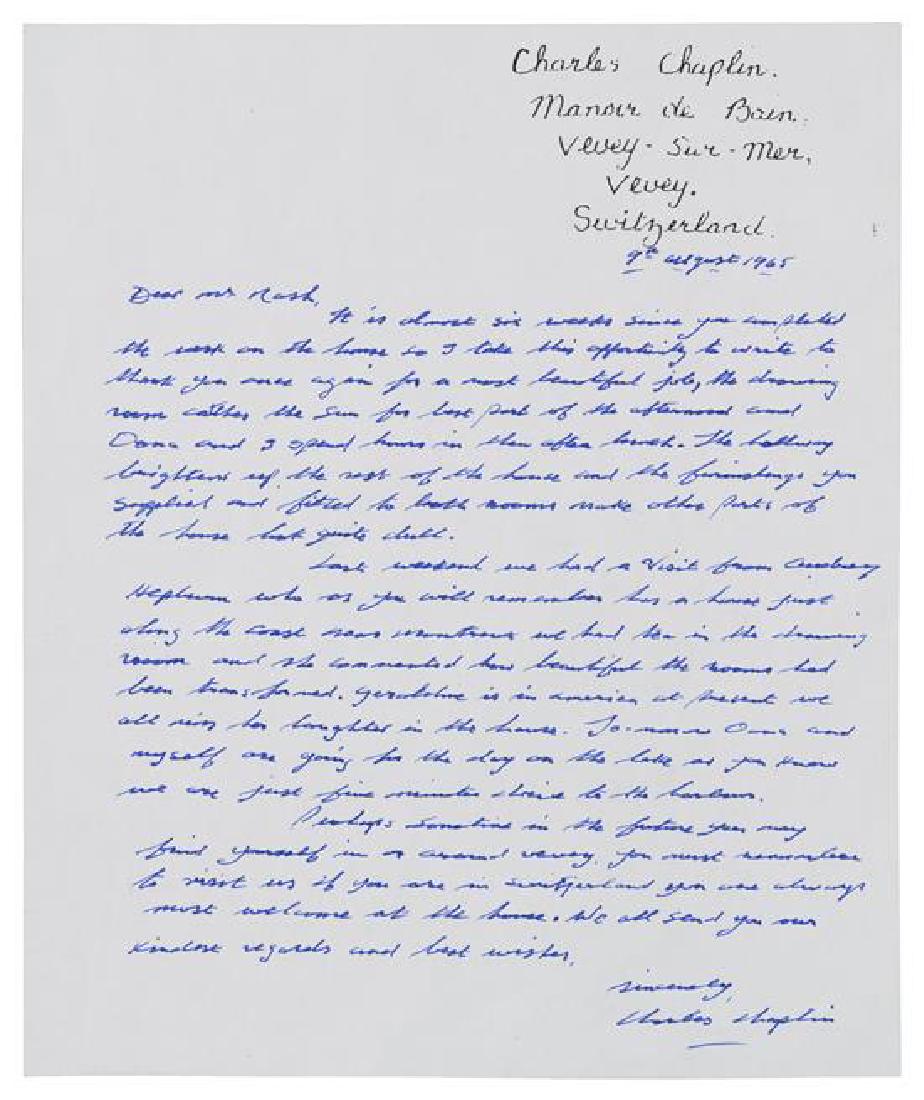 Charles Chaplin.
Manoir de Bain.
Vevey - Sur - Mer,
Vevey.
Switzerland.
9th august 1965
Dear mr Nash,
It is almost six weeks since you completed
the work on the house so I take this opportunity to write to
thank you once again for a most beautiful job, the drawing
room catches the sun for best part of the afternoon and
Oona and I spend hours in then after lunch. The hallway
brightens up the rest of the house and the furnishings you
supplied and fitted to both rooms make other parts of
the house look quite dull.
Last weekend we had a visit from Audrey
Hepburn who as you will remember has a house just
along the coast near montreux we had tea in the drawing
room and she commented how beautiful the rooms had
been transformed. Geraldine is in america at present we
all miss her laughter in the house. Oona and
myself are going for the day on the lake as you know
we are just five minutes drive to the harbour.
Perhaps sometime in the future you may
find yourself in or around vevey you must remember
to visit us if you are in Switzerland you are always
most welcome at the house. We all send you our
kindest regards and best wishes,
sincerely,
Charles Chaplin